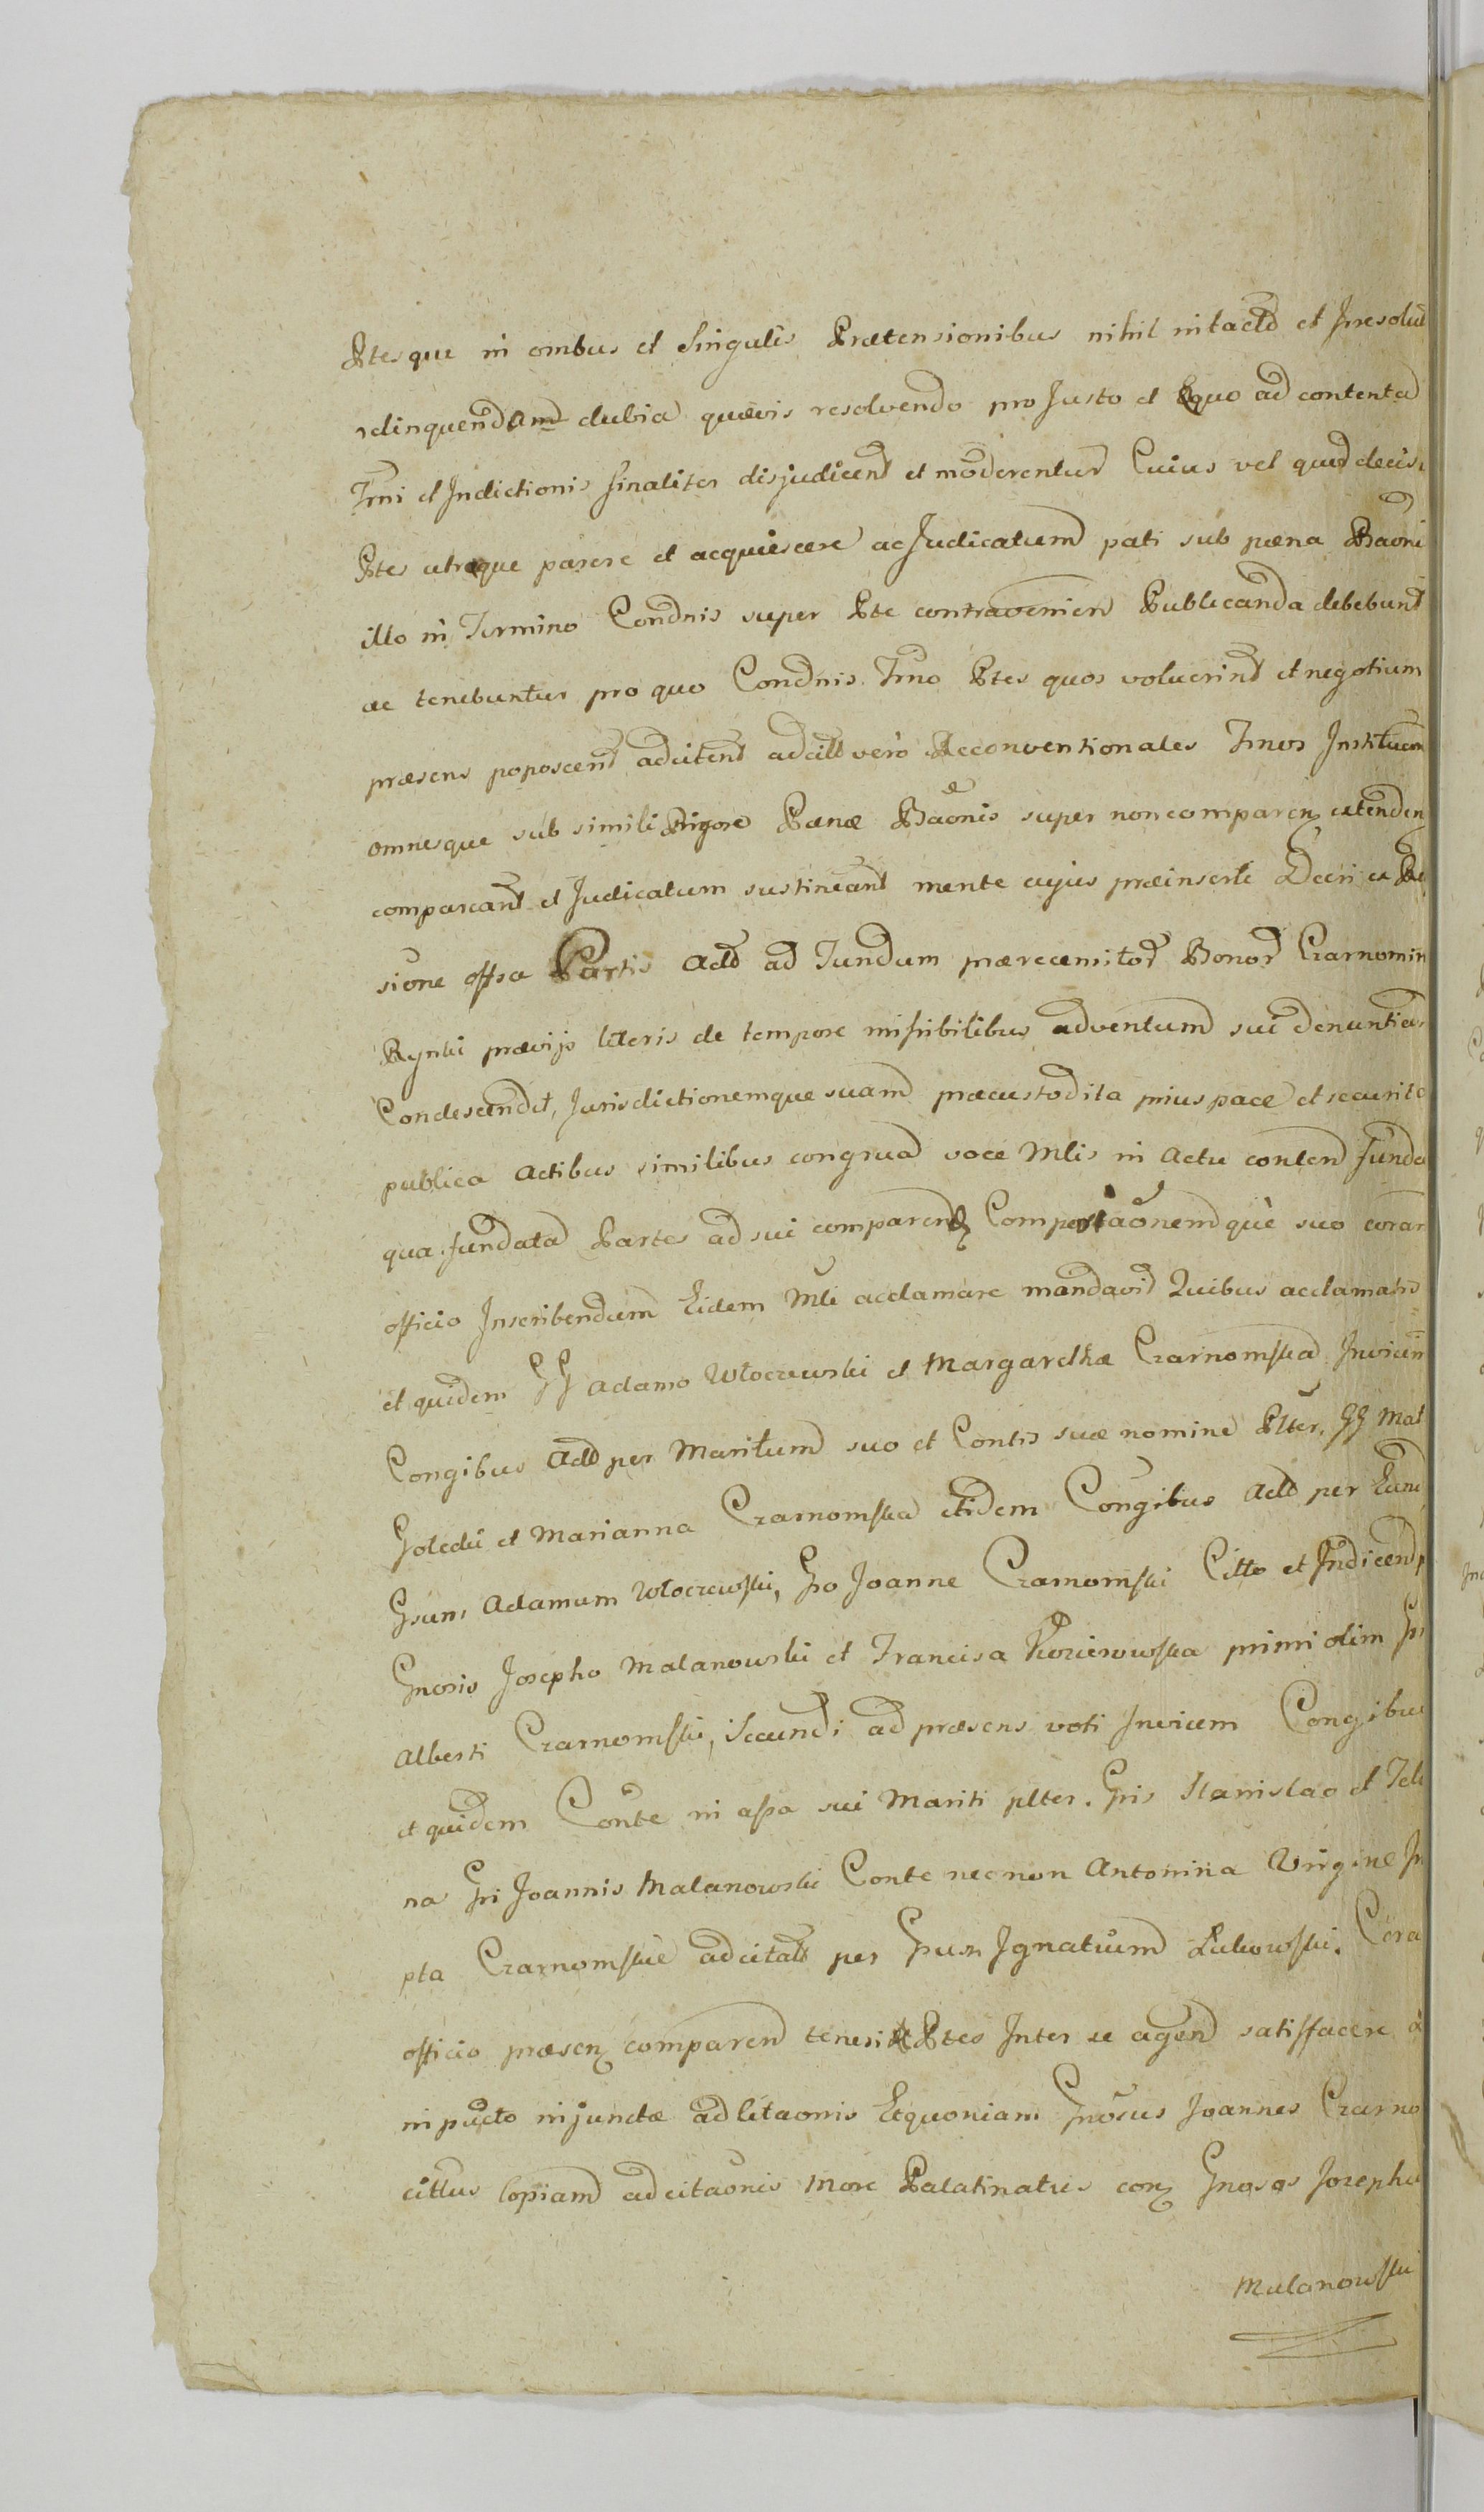 Ptesque in ombus et Singulis Prætensionibus nihil intactd et Irresolut
relinquendamd dubia quævis resolvendo pro Justo et Equo ad contentad
Trni et Indictionis finaliter disjudicent et moderenturd Cuius vel quid decis
Ptes utræque parere et acquiescere ac Judicatum pati sub pæna Baoni
illo in Termino Condnis super Pte contravenien Publicanda debebunt
ac tenebuntur pro quo Condnis Trno Ptes quos voluerint et negotium
præsens poposcent adcitent adcitt vero Reconventionales Trnos Instituen
omnesque sub simili Rigore Pænæ Baonis super non comparen extenden
compareant et Judicatum sustineant mente cujus præinserti Decri ex
sione offsa Partis Actt ad Fundum prærecensitor Bonor Czarnomin
Rynki prævijs literis de tempore missibilibus adventum sui denuntian
Condescendit, Jurisdictionemque suam præcustodita prius pace et securita
publica Actibus similibus congrua voce Mlis in Actu conten funda
qua fundata Partes ad sui comparen que suo coram
officio Inscribendum Eidem Mli acclamare mandavit Quibus acclamatis
et quidem GG Adamo Wloczewski et Margaretha Czarnomska Invicem
Congibus Actt per Maritum suo et Contis suæ nomine Plter. GG Mat
Goledzi et Marianna Czarnomska itidem Congibus Actt per Eund
Gsum Adamum Wloczewski, Gso Joanne Czarnomski Citto et Indicend
Gnoris Josepho Malanowski et Francisa Kozierowska primi olim
Alberti Czarnomski, Secundi ad præsens voti Invicem Congibus
et quidem Conte in assa sui Mariti plter. Gris Stanislao et
na Gri Joannis Malanowski Conte necnon Antonina Virgine
pta Czarnomskie adcitatt per Gsum Ignatium Lukowski. Cora
officio præsen comparen teneri Ptes Inter se agend satisfacere
in pucto injunctæ adcitaonis Etquoniam Gnosus Joannes Czarno
cittus Copiam adcitaonis More Palatinatus con Gnosos Josephu
Malanowski